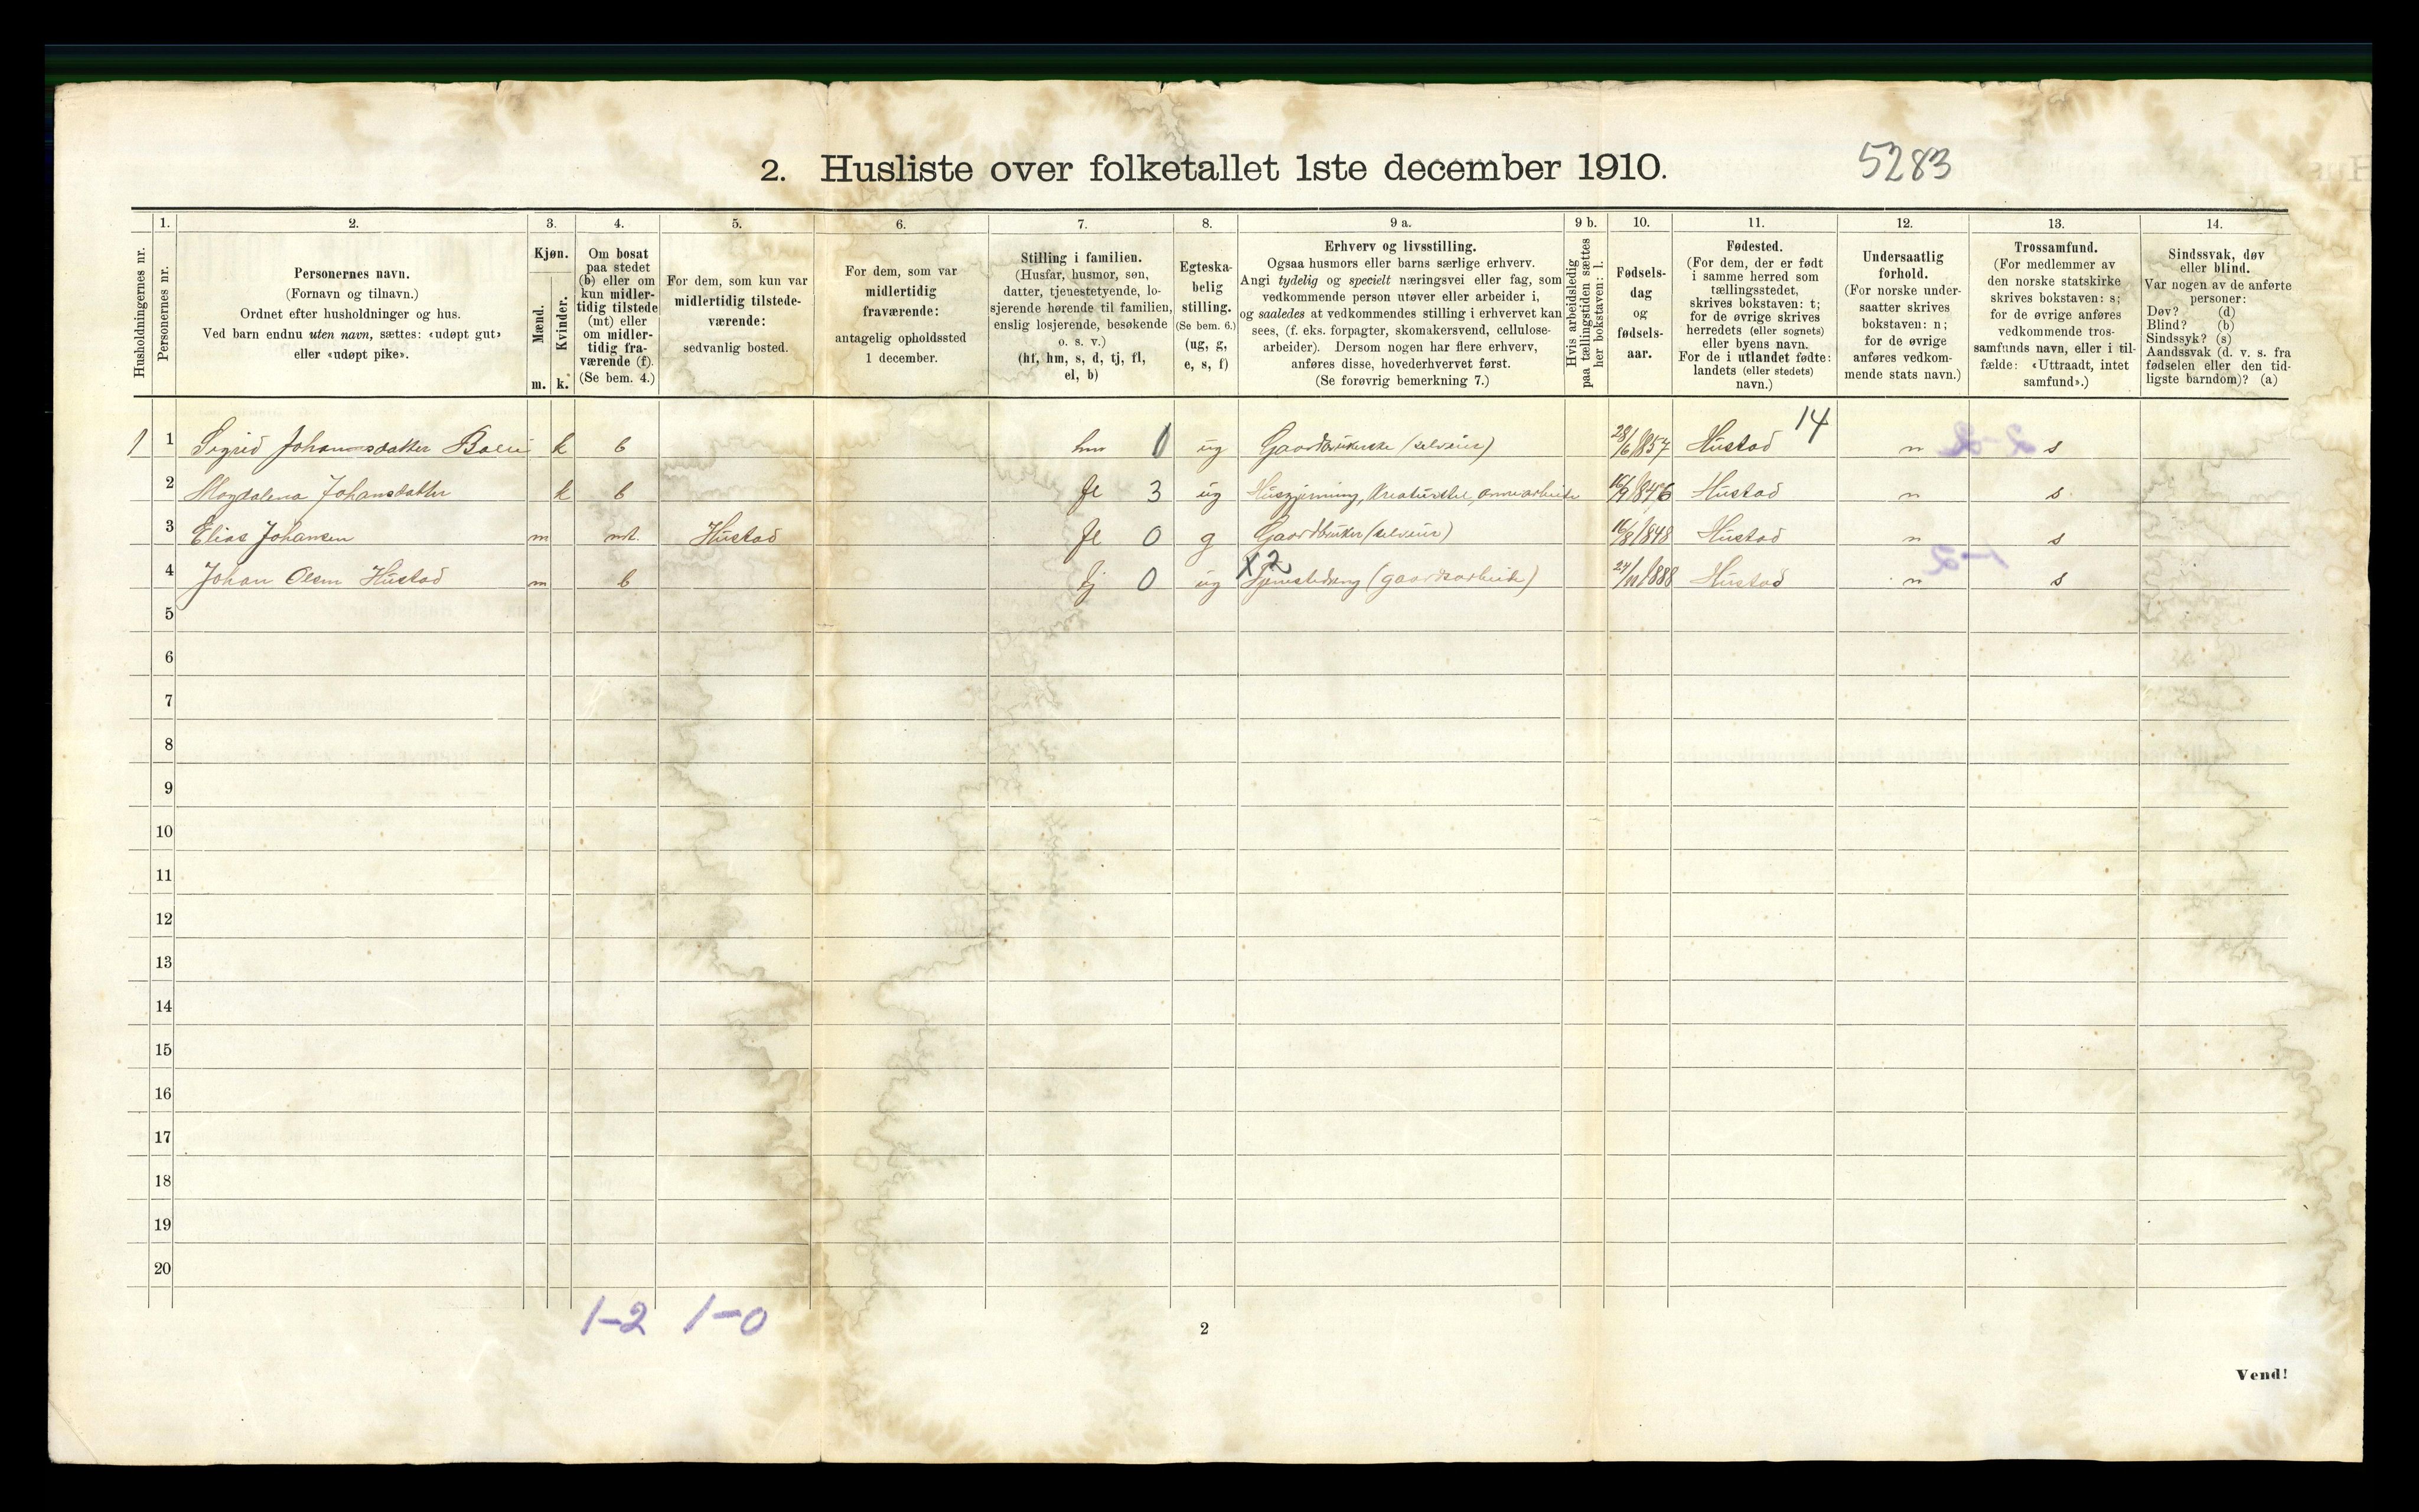 2. Husliste over folketallet 1ste december 1910.
5283
Husholdningernes nr.
1.
Personernes nr.
2.
Personernes navn.
(Fornavn og tilnavn.)
Ordnet efter husholdninger og hus.
Ved barn endnu uten navn, sættes: «udøpt gut»
eller «udøpt pike».
3.
Kjøn.
Mænd.
Kvinder.
m. k.
4.
Om bosat
paa stedet
(b) eller om
kun midler-
tidig tilstede
(mt) eller
om midler-
tidig fra-
værende (f).
(Se bem. 4.)
5.
For dem, som kun var
midlertidig tilstede-
værende:
sedvanlig bosted.
6.
For dem, som var
midlertidig
fraværende:
antagelig opholdssted
1 december.
7.
Stilling i familien.
(Husfar, husmor, søn,
datter, tjenestetyende, lo-
sjerende hørende til familien,
enslig losjerende, besøkende
o. s. v.)
(hf, hm, s, d, tj, fl,
el, b)
8.
Egteska-
belig
stilling.
(Se bem. 6.)
(ug, g,
e, s, f)
9 a.
Erhverv og livsstilling.
Ogsaa husmors eller barns særlige erhverv.
Angi tydelig og specielt næringsvei eller fag, som
vedkommende person utøver eller arbeider i,
og saaledes at vedkommendes stilling i erhvervet kan
sees, (f. eks. forpagter, skomakersvend, cellulose-
arbeider). Dersom nogen har flere erhverv,
anføres disse, hovederhvervet først.
(Se forøvrig bemerkning 7.)
9 b.
Hvis arbeidsledig
paa tællingstiden sættes
her bokstaven: l.
10.
Fødsels-
dag
og
fødsels-
aar.
11.
Fødested.
(For dem, der er født
i samme herred som
tællingsstedet,
skrives bokstaven: t;
for de øvrige skrives
herredets (eller sognets)
eller byens navn.
For de i utlandet fødte:
landets (eller stedets)
navn.)
12.
Undersaatlig
førhold.
(For norske under-
saatter skrives
bokstaven: n;
for de øvrige
anføres vedkom-
mende stats navn.)
13.
Trossamfund.
(For medlemmer av
den norske statskirke
skrives bokstaven: s;
for de øvrige anføres
vedkommende tros-
samfunds navn, eller i til-
fælde: «Uttraadt, intet
samfund».)
14.
Sindssvak, døv
eller blind.
Var nogen av de anførte
personer:
Døv? (d)
Blind? (b)
Sindssyk? (s)
Aandssvak (d. v. s. fra
fødselen eller den tid-
ligste barndom)? (a)
14
1 1 Sigrid Johannsdatter k b hm ug Gaardbrukerske (selveier) 28/6 1857 Hustad n s
2 Magdalena Johansdatter k b fl 3 ug Husgjerning, Kreaturstel, 16/9 1846 Hustad n s
3 Elias Johansen m mt. Hustad fl 0 g Gaardbruker (selveier) 16/8 1848 Hustad n s
X2
4 Johan Olsen Hustad m b tj 0 ug Tjenestedreng (gaardsarbeide) 24/11 1888 Hustad n s
5
6
7
8
9
10
11
12
13
14
15
16
17
18
19
20
1-2 1-0
2
Vend!